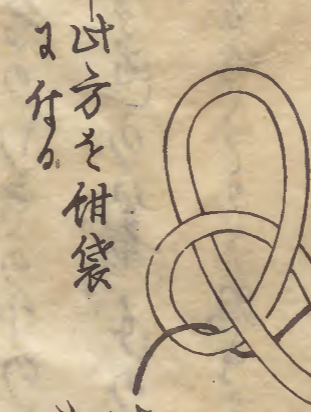 此方を鉗袋
に付る